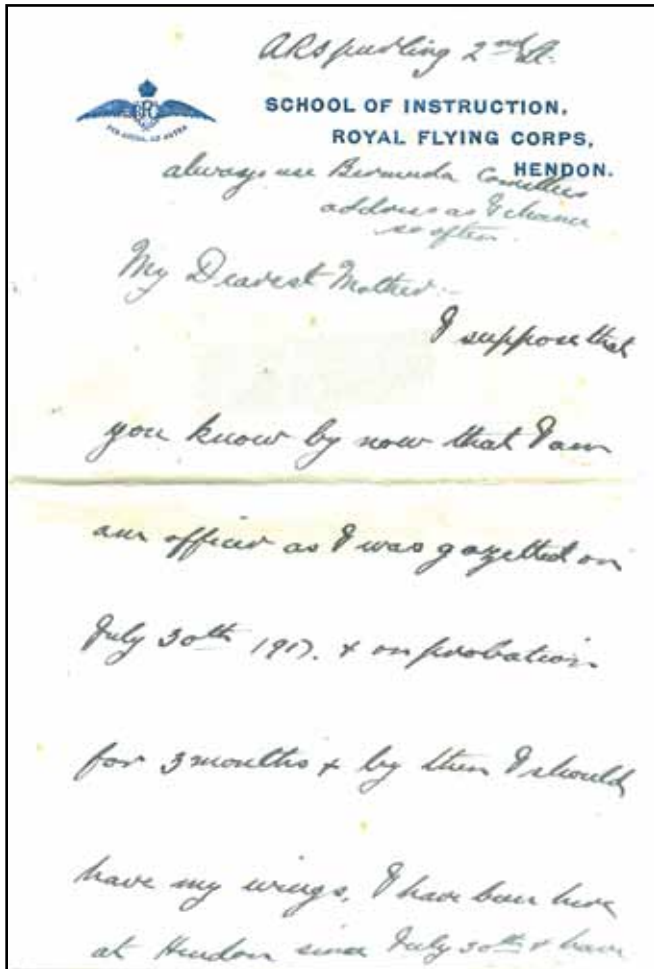 ARSpurling 2nd Lt.
SCHOOL OF INSTRUCTION,
ROYAL FLYING CORPS,
HENDON.
always use Bermuda
address as I chance
so often.
My Dearest Mother:-
I suppose that
you know by now that I am
an officer as I was gazetted on
July 30th 1917. & on probation
for 3 months & by then I should
have my wings. I have been here
at Hendon since July 30th & have